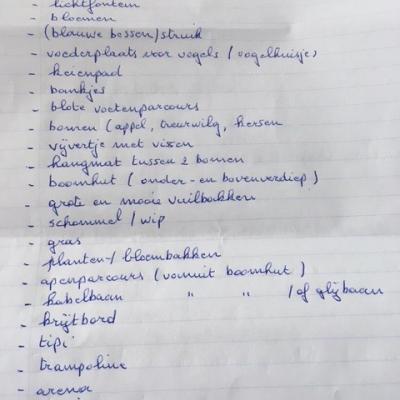 - lichtfontein
- bloemen
- (blauwe bessen) struik
- voederplaats voor vogels / vogelhuisjes
- keienpad
- bankjes
- blote voetenparcours
- bomen (appel, treurwilg, kersen
- vijvertje met vissen
- hangmat tussen 2 bomen
- boomhut (onder- en bovenverdiep)
- grote en mooie vuilbakken
- schommel / wip
- gras
- planten-/bloembakken
- apenparcours (vanuit boomhut)
- kabelbaan " " / of glijbaan
- krijtbord
- tipi
- trampoline
- arena